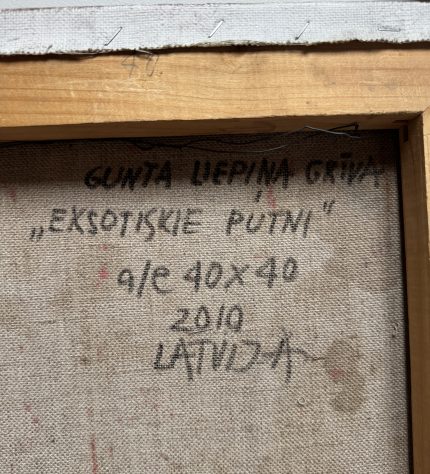 40
GUNTA LIEPIŅA GRĪVA
„EXSOTIŞKIE PUTNI"
a/e 40x40
2010
LATVIJA